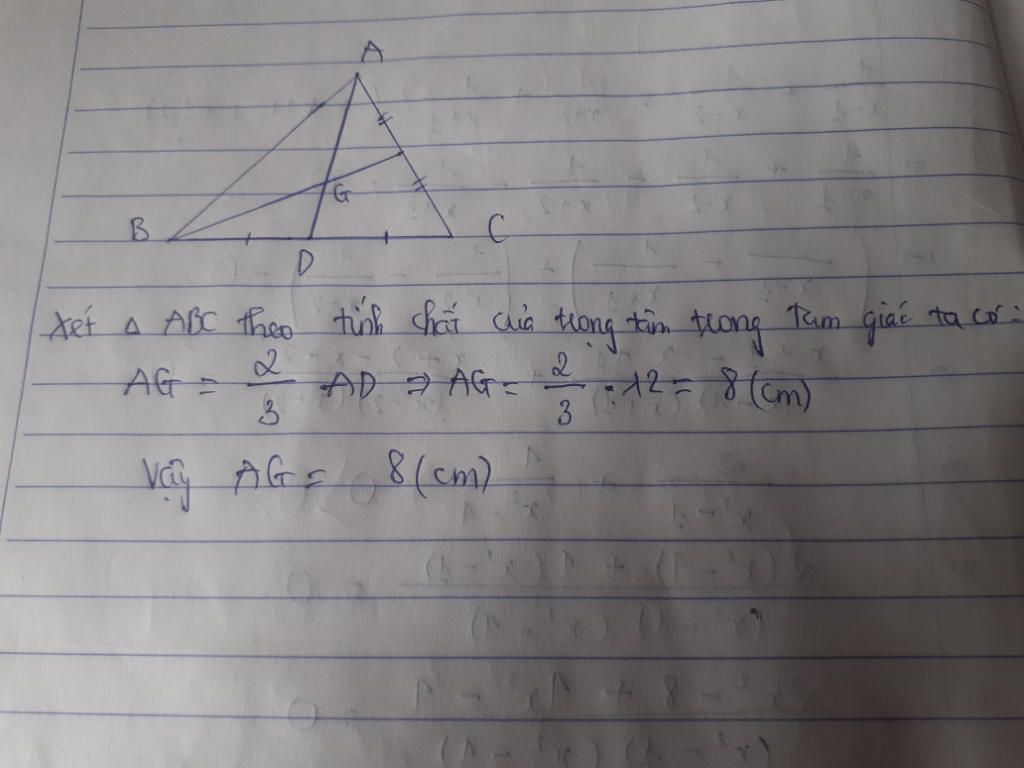 A
G
B
C
D
Xét Δ ABC theo tính chất của trọng tâm trong tam giác ta có:
AG = 2/3 AD ⇒ AG = 2/3 . 12 = 8 (cm)
Vậy AG = 8 (cm)